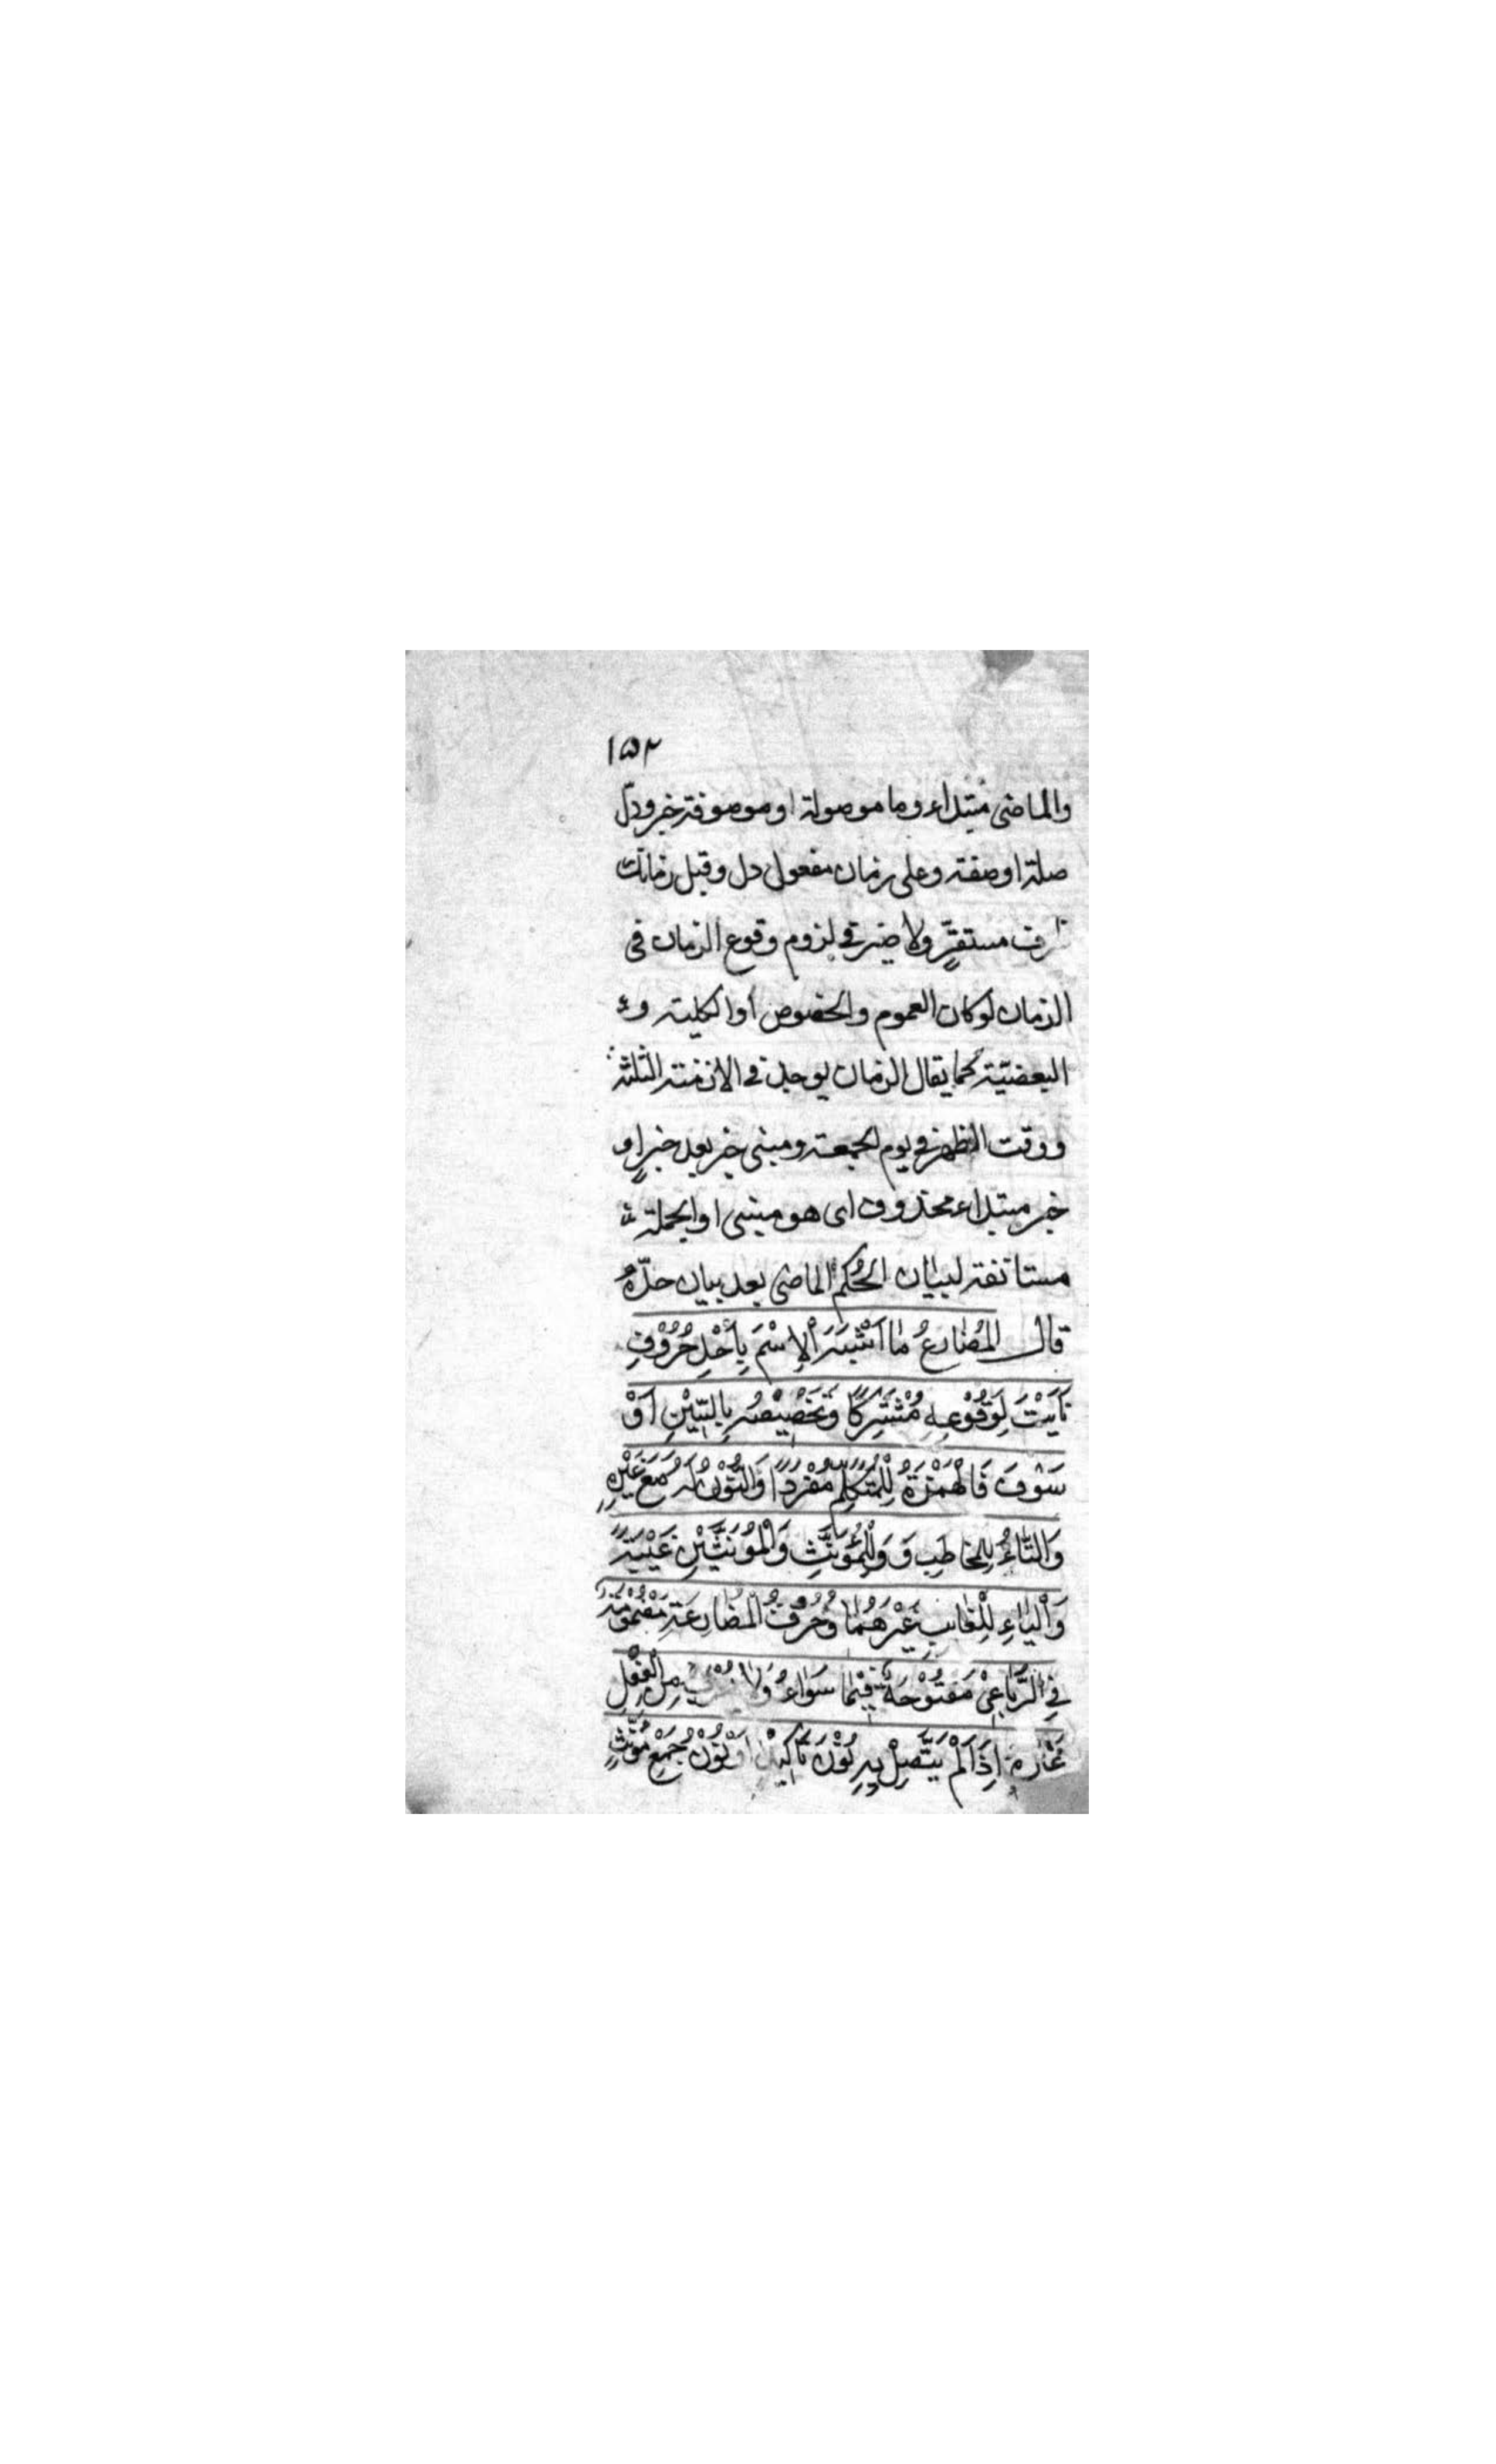 ١٥٢
والماضى مبتداء وما موصولة او موصوفة خبر ودلّ
صلة او صفة وعلى زمان مفعول دل وقبل زمانك
ظرف مستقرّ ولا ضير فى لزوم وقوع الزمان فى
الزمان لو كان العموم والخصوص او الكلية و
البعضيّة كما يقال الزمان يوجد فى الازمنة الثلثة
ووقت الظهر فى يوم الجمعة ومبنى خبر بعد خبر او
خبر مبتداء محذوف اى هو مبنى او الجملة
مستانفة لبيان الحكم الماضى بعد بيان حدّه
قال المُضَارِعُ مَا اَشْبَهَ الْاِسْمَ بِاَحَدِ حُرُوْفِ
نَاَيْتُ لِوُقُوْعِهِ مُشْتَرِكًا وَتَخْصِيْصُهُ بِالسِّيْنِ اَوْ
سَوْفَ فَالْهَمْزَةُ لِلْمُتَكَلِّمِ مُفْرَدًا وَالنُّوْنُ لَهُ مَعَ غَيْرِهِ
وَالتَّاءُ لِلْمُخَاطَبِ وَ وَلِلْمُؤَنَّثِ وَالْمُؤَنَّثَيْنِ غَيْبَةً
وَالْيَاءِ لِلْغَائِبِ غَيْرِهُمَا وَحُرُوْفُ الْمُضَارَعَةِ مَضْمُوْمَةٌ
فِي الرُّبَاعِيْ مَفْتُوْحَةٌ فِيْمَا سَوَاءُ وَلَا مِنَ الْفِعْلِ
غَيْرُهُ اِذَا لَمْ يَتَّصِلْ بِهِ نُوْنُ تَاكِيْد اَوْ نُوْنُ جَمْعِ مُؤَنَّثٍ